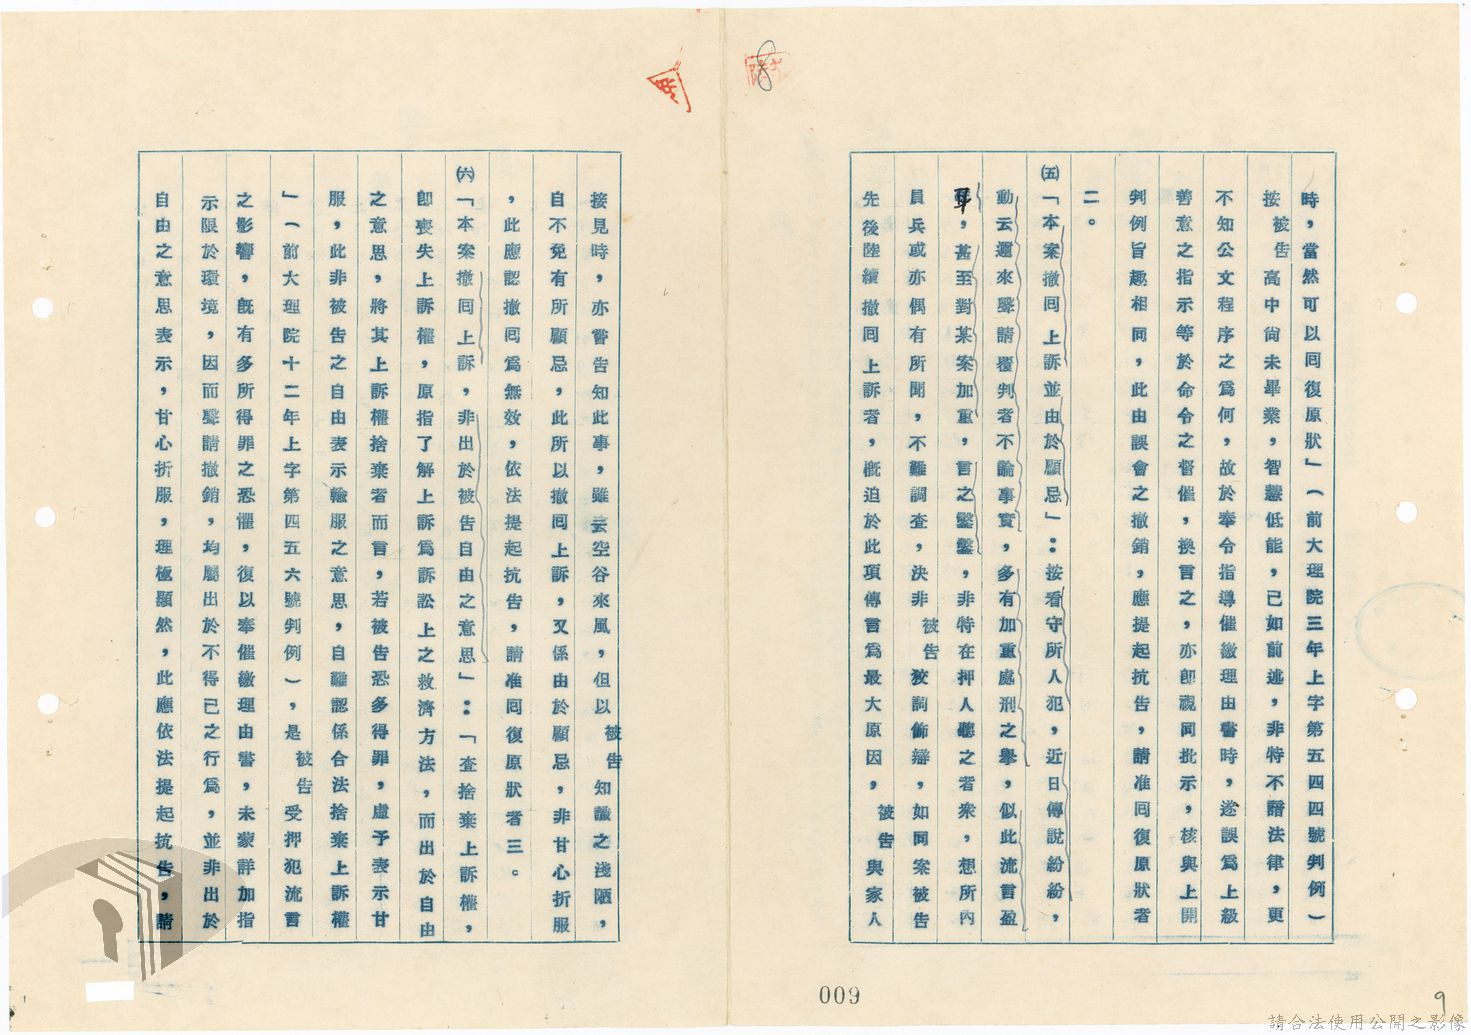 時，當然可以囘復原狀」（前大理院三年上字第五四四號判例）
按被告高中尙未畢業，智慧低能，已如前述，非特不諳法律，更
不知公文程序之爲何，故於奉令指導催繳理由書時，遂誤爲上級
善意之指示等於命令之督催，換言之，亦卽視同批示，核與上開
判例旨趣相同，此由誤會之撤銷，應提起抗告，請准囘復原狀者
二。
㈤「本案撤囘上訴並由於顧忌」：按看守所人犯，近日傳說紛紛，
動云邇來聲請覆判者不論事實，多有加重處刑之舉，似此流言盈
耳，甚至對某案加重，言之鑿鑿，非特在押人聽之者衆，想所內
員兵或亦偶有所聞，不難調查，決非被告狡詞飾辯，如同案被告
先後陸續撤囘上訴者，槪迫於此項傳言爲最大原因，被告與家人
接見時，亦嘗告知此事，雖云空谷來風，但以被告知識之淺陋，
自不免有所顧忌，此所以撤囘上訴，又係由於顧忌，非甘心折服
，此應認撤囘爲無效，依法提起抗告，請准囘復原狀者三。
㈥「本案撤囘上訴，非出於被告自由之意思」：「查捨棄上訴權，
卽喪失上訴權，原指了解上訴爲訴訟上之救濟方法，而出於自由
之意思，將其上訴權捨棄者而言，若被告恐多得罪，虛予表示甘
服，此非被告之自由表示輸服之意思，自難認係合法捨棄上訴權
」（前大理院十二年上字第四五六號判例），是被告受押犯流言
之影響，旣有多所得罪之恐懼，復以奉催繳理由書，未蒙詳加指
示限於環境，因而聲請撤銷，均屬出於不得已之行爲，並非出於
自由之意思表示，甘心折服，理極顯然，此應依法提起抗告，請
009
9
請合法使用公開之影像